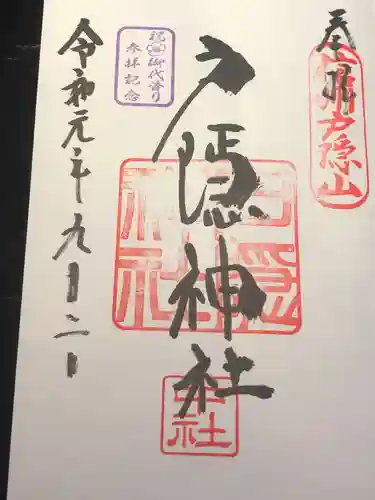 奉拝
戸隠山
戸隠神社
戸隠神社
中社
祝 御代替り
参拝記念
令和元年九月二日